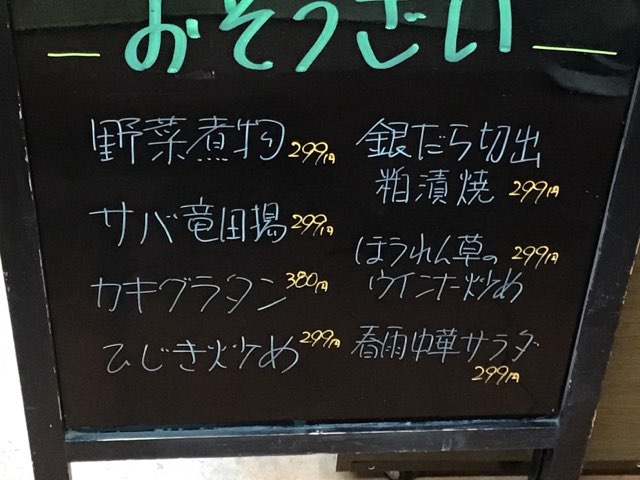 おそうざい
野菜煮物 299円
サバ竜田揚 299円
カキグラタン 380円
ひじき炒め 299円
銀だら切出
粕漬焼 299円
ほうれん草の 299円
ウインナー炒め
春雨中華サラダ
299円